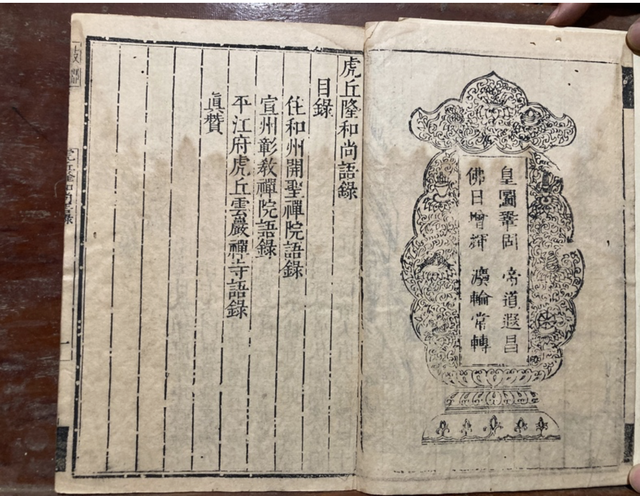 皇圖鞏固 帝道遐昌
佛日增輝 法輪常轉
虎丘隆和尚語錄
目錄
住和州開聖禪院語錄
宣州彰教禪院語錄
平江府虎丘雲巖禪寺語錄
真贊
虎丘隆和尚語錄
一